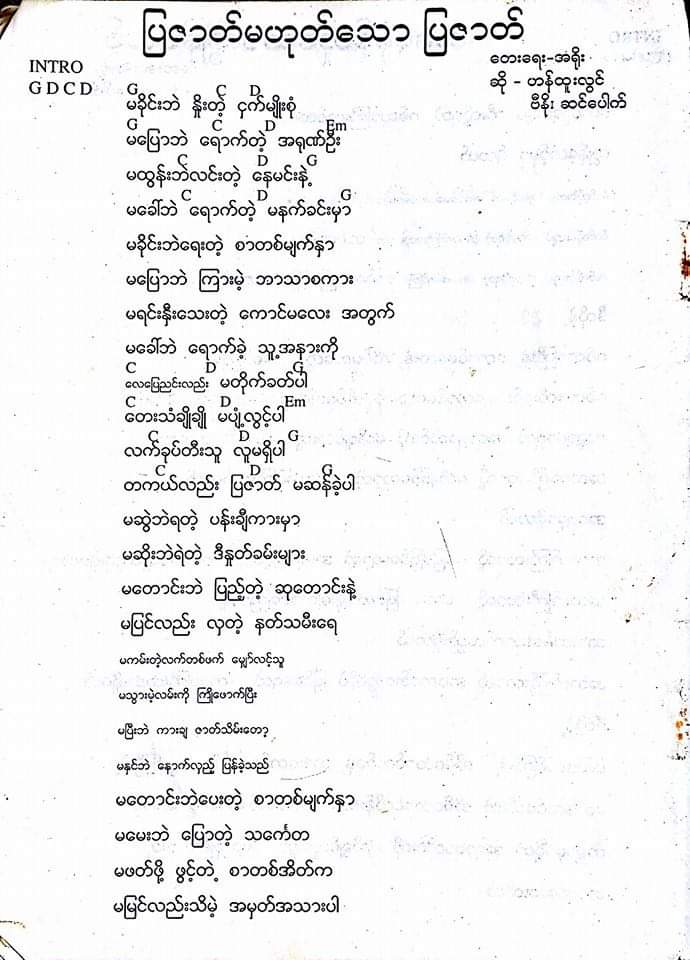 ပြဇာတ်မဟုတ်သော ပြဇာတ်
တေးရေး-အရိုး
ဆို - ဟန်ထူးလွင်
ဗီနိုး ဆင်ပေါက်
INTRO
G D C D
G C D
မခိုင်းဘဲ နှိုးတဲ့ ငှက်မျိုးစုံ
G C D Em
မပြောဘဲ ရောက်တဲ့ အရုဏ်ဦး
C D G
မထွန်းဘဲလင်းတဲ့ နေမင်းနဲ့
C D G
မခေါ်ဘဲ ရောက်တဲ့ မနက်ခင်းမှာ
မခိုင်းဘဲရေးတဲ့ စာတစ်မျက်နှာ
မပြောဘဲ ကြားမဲ့ ဘာသာစကား
မရင်းနှီးသေးတဲ့ ကောင်မလေး အတွက်
မခေါ်ဘဲ ရောက်ခဲ့ သူ့အနားကို
C D G
လေပြေညင်းလည်း မတိုက်ခတ်ပါ
C D Em
တေးသံချိုချို မပျံ့လွင့်ပါ
C D G
လက်ခုပ်တီးသူ လူမရှိပါ
C D G
တကယ်လည်း ပြဇာတ် မဆန်ခဲ့ပါ
မဆွဲဘဲရတဲ့ ပန်းချီကားမှာ
မဆိုးဘဲရဲတဲ့ ဒီနှုတ်ခမ်းများ
မတောင်းဘဲ ပြည့်တဲ့ ဆုတောင်းနဲ့
မပြင်လည်း လှတဲ့ နတ်သမီးရေ
မကမ်းတဲ့လက်တစ်ဖက် မျှော်လင့်သူ
မသွားမဲ့လမ်းကို ကြိုဖောက်ပြီး
မပြီးဘဲ ကားချ ဇာတ်သိမ်းတော့
မနှင်ဘဲ နောက်လှည့် ပြန်ခဲ့သည်
မတောင်းဘဲပေးတဲ့ စာတစ်မျက်နှာ
မမေးဘဲ ပြောတဲ့ သင်္ကေတ
မဖတ်ဖို့ ဖွင့်တဲ့ စာတစ်အိတ်က
မမြင်လည်းသိမဲ့ အမှတ်အသားပါ